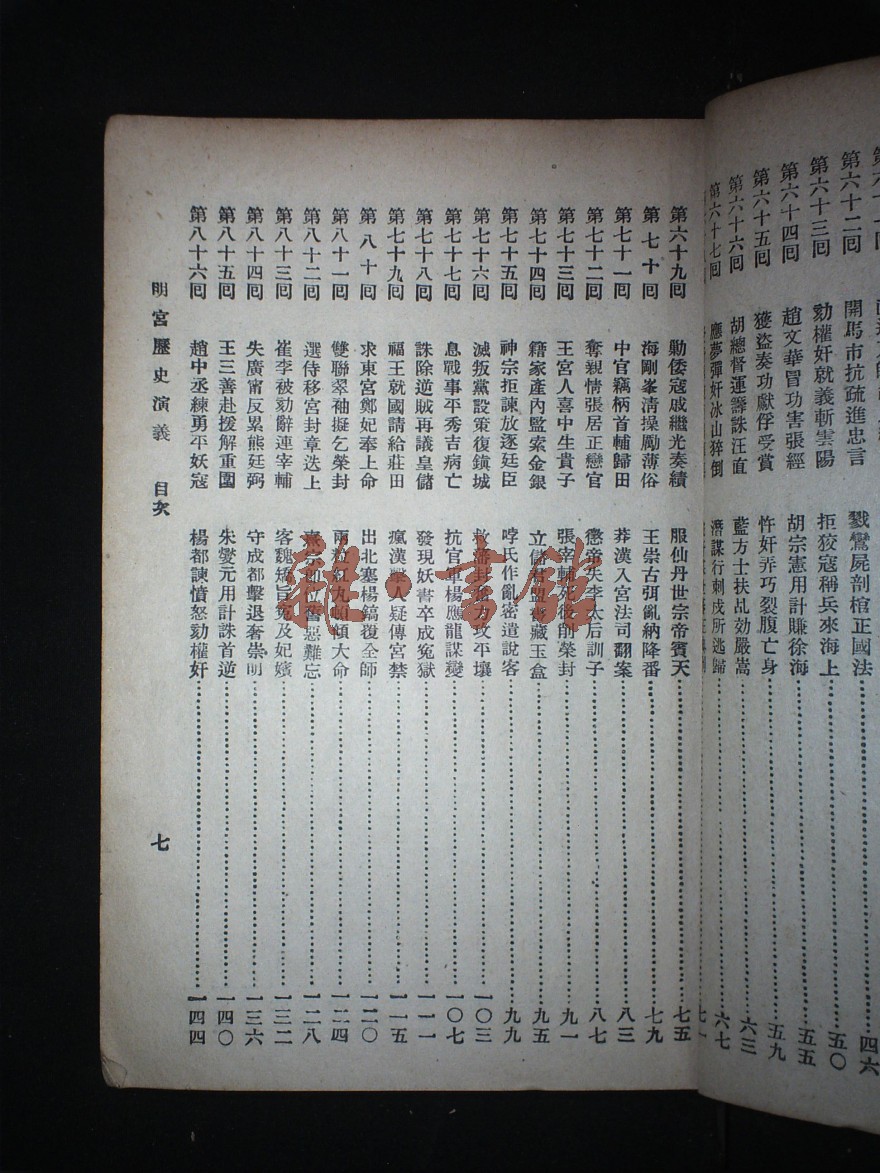 第六十二回 開馬市抗疏進忠言 戮鸞屍剖棺正國法 四六
第六十三回 劾權奸就義斬雲陽 拒狡寇稱兵來海上 五〇
第六十四回 趙文華冒功害張經 胡宗憲用計賺徐海 五五
第六十五回 獲盜奏功獻俘受賞 忤奸弄巧裂腹亡身 五九
第六十六回 胡總督運籌誅汪直 藍方士扶乩効嚴嵩 六三
第六十七回 應夢彈奸冰山猝倒 潛謀行刺戍所逃歸 六七
第六十九回 勦倭寇戚繼光奏績 服仙丹世宗帝賓天 七五
第七十回 海剛峯清操勵薄俗 王崇古弭亂納降番 七九
第七十一回 中官竊柄首輔歸田 莽漢入宮法司翻案 八三
第七十二回 奪親情張居正戀官 懲帝失李太后訓子 八七
第七十三回 王宮人喜中生貴子 張宰輔死後削榮封 九一
第七十四回 籍家產內監索金銀 立儲君盟書藏玉盒 九五
第七十五回 神宗拒諫放逐廷臣 哱氏作亂密遣說客 九九
第七十六回 滅叛黨設策復鎮城 救藩封進力攻平壤 一〇三
第七十七回 息戰事平秀吉病亡 抗官軍楊應龍謀變 一〇七
第七十八回 誅除逆賊再議皇儲 發現妖書卒成冤獄 一一一
第七十九回 福王就國請給莊田 瘋漢擊人疑傳宮禁 一一五
第八十回 求東宮鄭妃奉上命 出北塞楊鎬覆全師 一二〇
第八十一回 雙聯翠袖擬乞榮封 兩粒紅丸頓傾大命 一二四
第八十二回 選侍移宮封章迭上 熹宗即位舊惡難忘 一二八
第八十三回 崔李被劾辭連宰輔 客魏矯旨冤及妃嬪 一三二
第八十四回 失廣甯反累熊廷弼 守成都擊退奢崇明 一三六
第八十五回 王三善赴援解重圍 朱燮元用計誅首逆 一四〇
第八十六回 趙中丞練勇平妖寇 楊都諫憤怒劾權奸 一四四
明宮歷史演義 目次 七
龍·書館